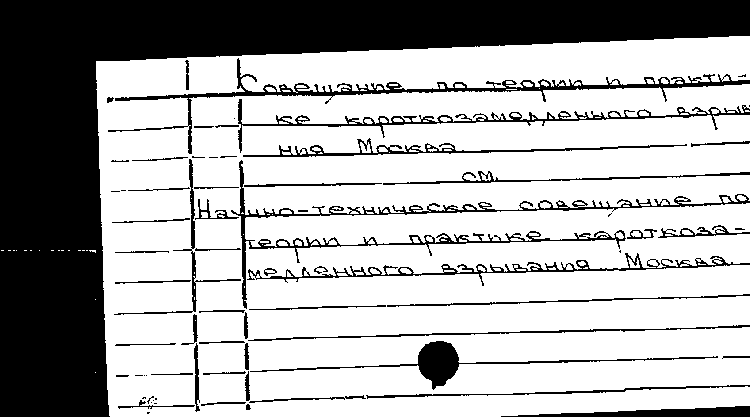 Совещание по теории и практи-
ке короткозамедленного взрыв
ния Москва
см.
Научно-техническое совещание по
теории и практике короткоза-
медленного взрывания Москва